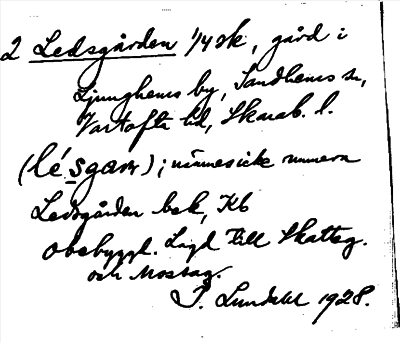 2 Ledsgården 1/4 sk, gård i
Ljunghems by, Sandhems sn,
Vartofta hd, Skarab. l.
(lésgaɳ); minnes icke numera
Ledsgården bek, Kb
obebyggt. Lagd till Skatteg.
och Mossag.
P. Lundahl 1928.